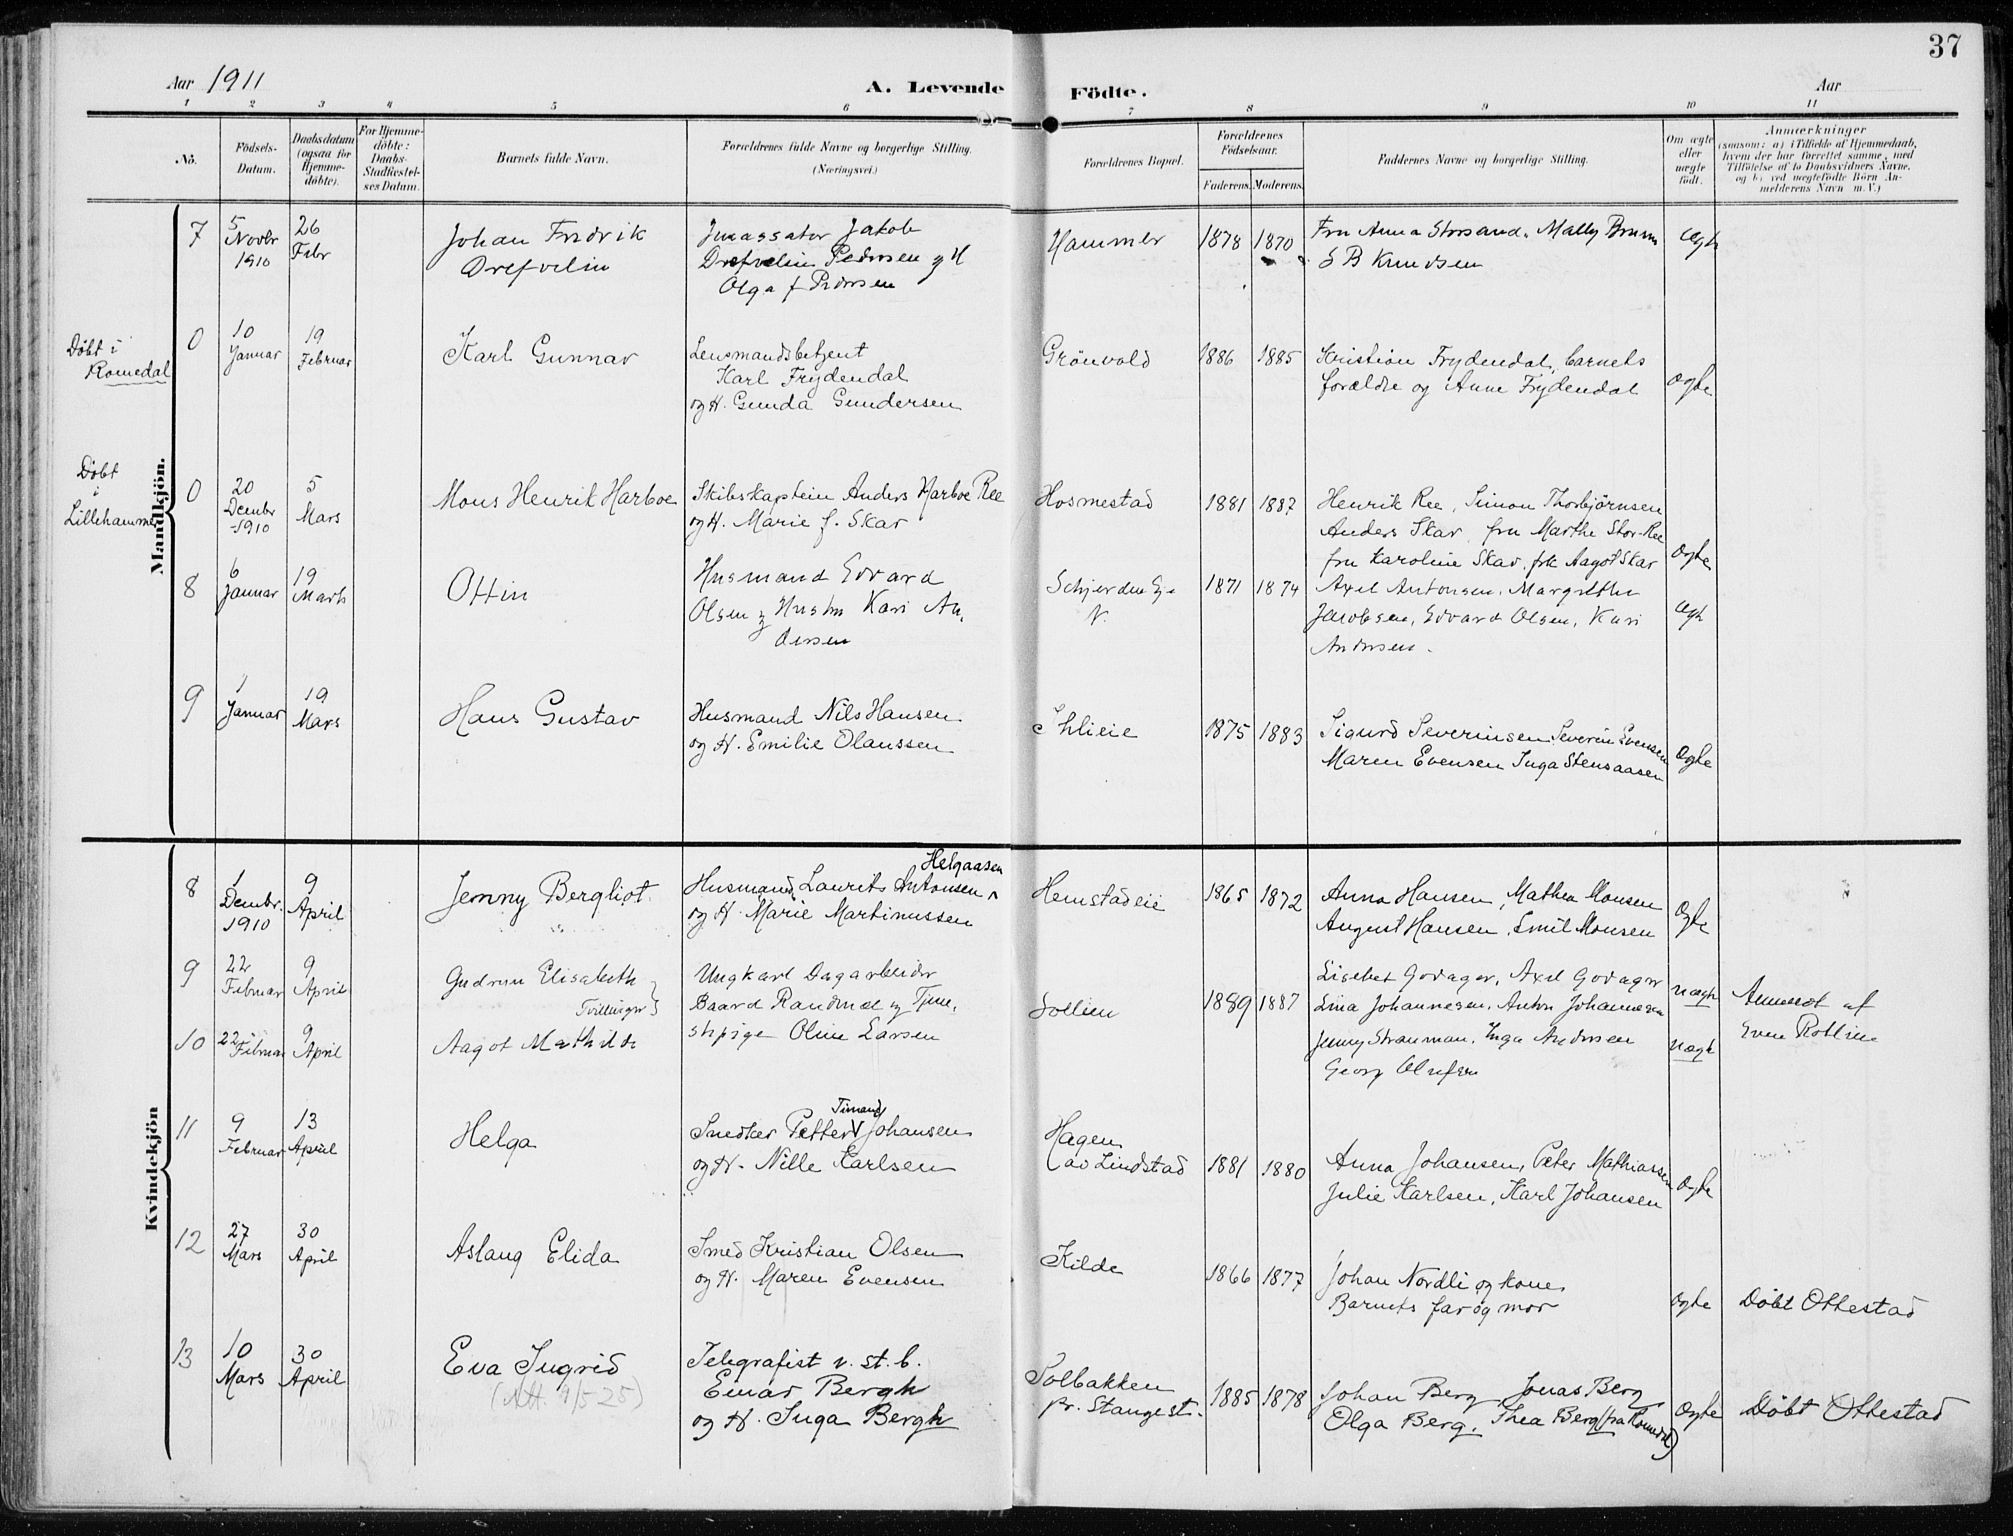 37
Aar 1911
A. Levende Födte.
Aar
1 2 3 4 5 6 7 8 9 10 11
No.
Födsels-
Datum.
Daabsdatum
(ogsaa for
Hjemme-
döbte).
For Hjemme-
döbte:
Daabs-
Stadfæstel-
ses Datum.
Barnets fulde Navn.
Forældrenes fulde Navne og borgerlige Stilling.
(Næringsvei.)
Forældrenes Bopæl.
Forældrenes
Födselsaar.
Faderens. Moderens.
Faddernes Navne og borgerlige Stilling.
Om ægte
eller
uægte
födt.
Anmærkninger
(saasom: a) i Tilfælde af Hjemmedaab,
hvem der har forrettet samme, med
Tilföielse af to Daabsvidners Navne,
og b) ved uægtefödte Börn An-
melderens Navn m. V.)
Mandkjön.
7
5 Novbr 1910
26 Febr
Johan Fredrik
Drefvelin
Jakob
Drefvelin Pedersen og H
Olga f Pedersen
Hammer
1878 1870
Fru Anna Storsand. Mally Bruun
S B Knudsen
Ægte
Døbt i
Romedal
0
10 Januar
19 Februar
Karl Gunnar
Lensmandsbetjent
Karl Frydendal
og H. Gunda Gundersen
Grönvold
1886 1885
Kristian Frydendal, barnets
forældre og Anne Frydendal
Ægte
Døbt
i
Lillehammer
0
20 Decmbr -1910
5 Mars
Mons Henrik Harboe
Skibskaptein Anders Harboe Ree
og H. Marie f. Skar
Hosmestad
1881 1887
Henrik Ree, Simon Thorbjørnsen
Anders Skar, fru Marthe Stor-Ree
fru Karoline Skar, frk Aagot Skar
Ægte
8
6 Januar
19 Marts
Ottin
Husmand Edvard
Olsen og Hustru Kari An-
dersen
Schjerden Ei.
N.
1871 1874
Axel Antonsen. Margrethe
Jacobsen, Edvard Olsen, Kari
Andersen.
Ægte
9
1 Januar
19 Mars
Hans Gustav
Husmand Nils Hansen
og H. Emilie Olaussen
Ihlieie
1875 1883
Sigurd Severinsen, Severin Evensen
Maren Evensen Inga Stensaasen
Ægte
Kvindekjön
8
1 Decmbr. 1910
9 April
Jenny Bergliot.
Helgaasen
Husmand Laurits Antonsen
og H. Marie Martinussen
Hemstadeie
1865 1872
Anna Hansen, Mathea Monsen
August Hansen, Emil Monsen
Ægte
9
22 Februar
9 April
Gudrun Elisabeth
Tvillinger
Ungkarl Dagarbeider
Baard Randmæl og Tjene-
stepige Oline Larsen
Sollien
1889 1887
Lisebet Godager, Axel Godager
Lina Johannesen. Anton Johannesen
uægte
Anmeldt af
Even Rotlien
10
22 Februar
9 April
Aagot Mathilde
Jenny Strauman. Inga Andersen
Georg Olufsen
uægte
11
9 Februar
13 April
Helga
Timand
Snedker Petter Johansen
og H. Nille Karlsen
Hagen
av Lindstad
1881 1880
Anna Johansen, Peter Mathiassen
Julie Karlsen, Karl Johansen
Ægte
12
27 Mars
30 April
Aslaug Elida
Smed Kristian Olsen
og H. Maren Evensen
Kilde
1866 1877
Johan Nordli og kone
Barnets far og mor
Ægte
Døbt Ottestad
13
10 Mars
30 April
Eva Ingrid
(Att. 9/5 25)
Telegrafist v. st. b.
Einar Bergh
og H. Inga Bergh
Solbakken
pr. Stange st.
1885 1878
Johan Berg Jonas Berg
Olga Berg. Thea Berg (fra Romedal)
Ægte
Døbt Ottestad